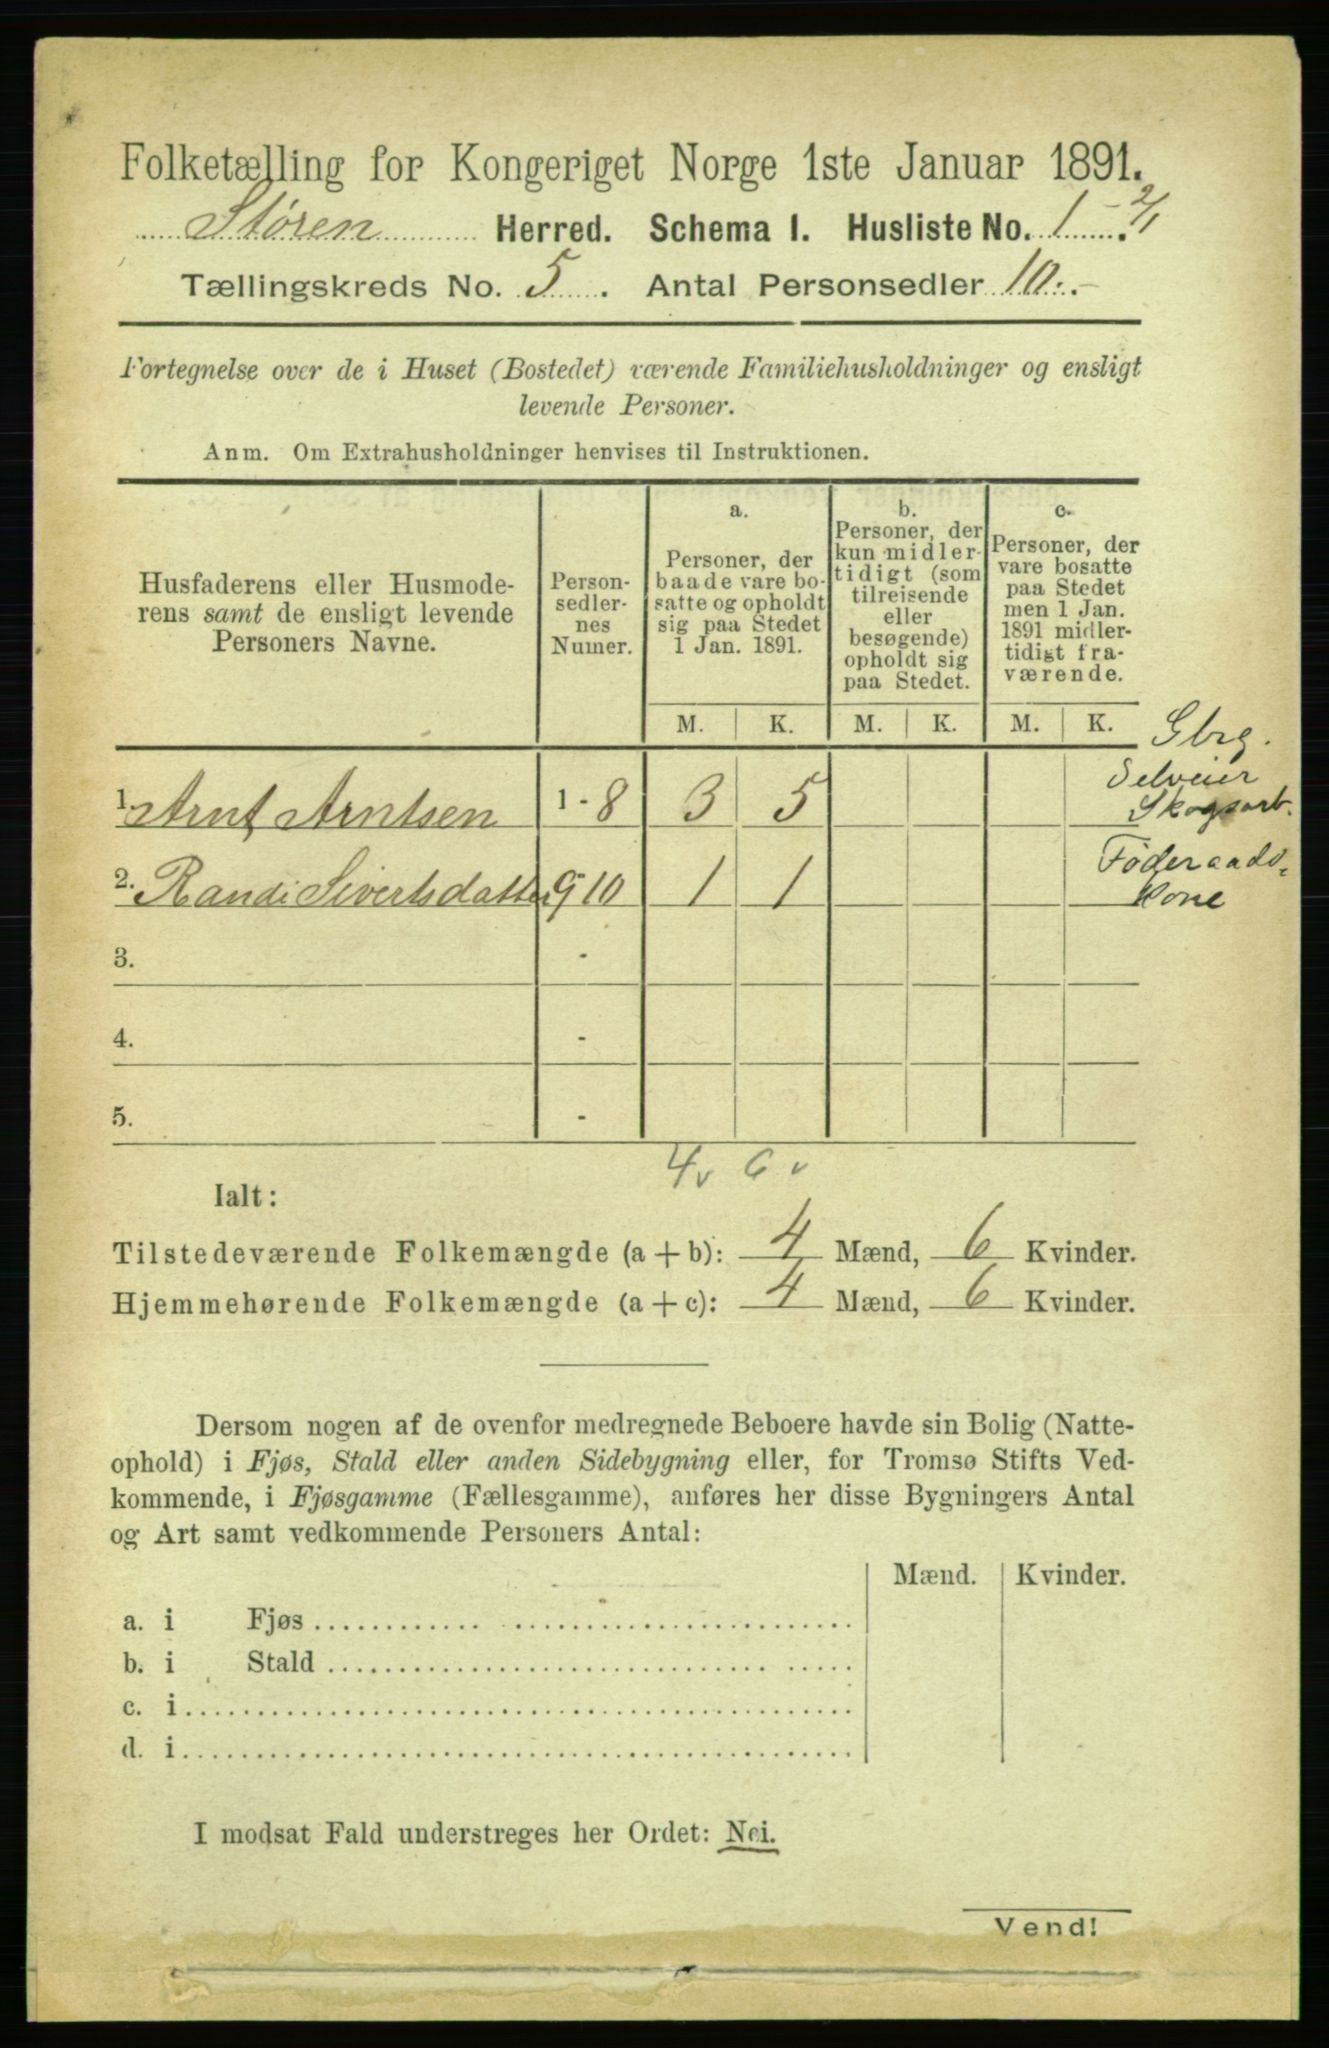 Folketælling for Kongeriget Norge 1ste Januar 1891.
Støren Herred. Schema I. Husliste No. 1 - 2/1
Tællingskreds No. 5. Antal Personsedler 10.-
Fortegnelse over de i Huset (Bostedet) værende Familiehusholdninger og ensligt
levende Personer.
Anm. Om Extrahusholdninger henvises til Instruktionen.
Husfaderens eller Husmode-
rens samt de ensligt levende
Personers Navne.
Person-
sedler-
nes
Numer.
a.
Personer, der
baade vare bo-
satte og opholdt
sig paa Stedet
1 Jan. 1891.
b.
Personer, der
kun midler-
tidigt (som
tilreisende
eller
besøgende)
opholdt sig
paa Stedet.
c.
Personer, der
vare bosatte
paa Stedet
men 1 Jan.
1891 midler-
tidigt fra-
værende.
M. K. M. K. M. K. Gbrg.
Selveier
1. Arnt Arntsen 1 - 8 3 5 Skogsarb.
2. Randi Sivertsdatter 9-10 1 1 Føderaads-
Kone
3. -
4. -
5. -
4v 6v
Ialt:
Tilstedeværende Folkemængde (a + b): 4 Mænd, 6 Kvinder.
Hjemmehørende Folkemængde (a + c): 4 Mænd, 6 Kvinder.
Dersom nogen af de ovenfor medregnede Beboere havde sin Bolig (Natte-
ophold) i Fjøs, Stald eller anden Sidebygning eller, for Tromsø Stifts Ved-
kommende, i Fjøsgamme (Fællesgamme), anføres her disse Bygningers Antal
og Art samt vedkommende Personers Antal:
Mænd. Kvinder.
a. i Fjøs
b. i Stald
c. i
d. i
I modsat Fald understreges her Ordet: Nei.
Vend!